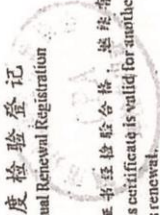 度检验登记
ual Renewal Registration
证书经检验合格,继续有
s certificate is valid for another
renewal